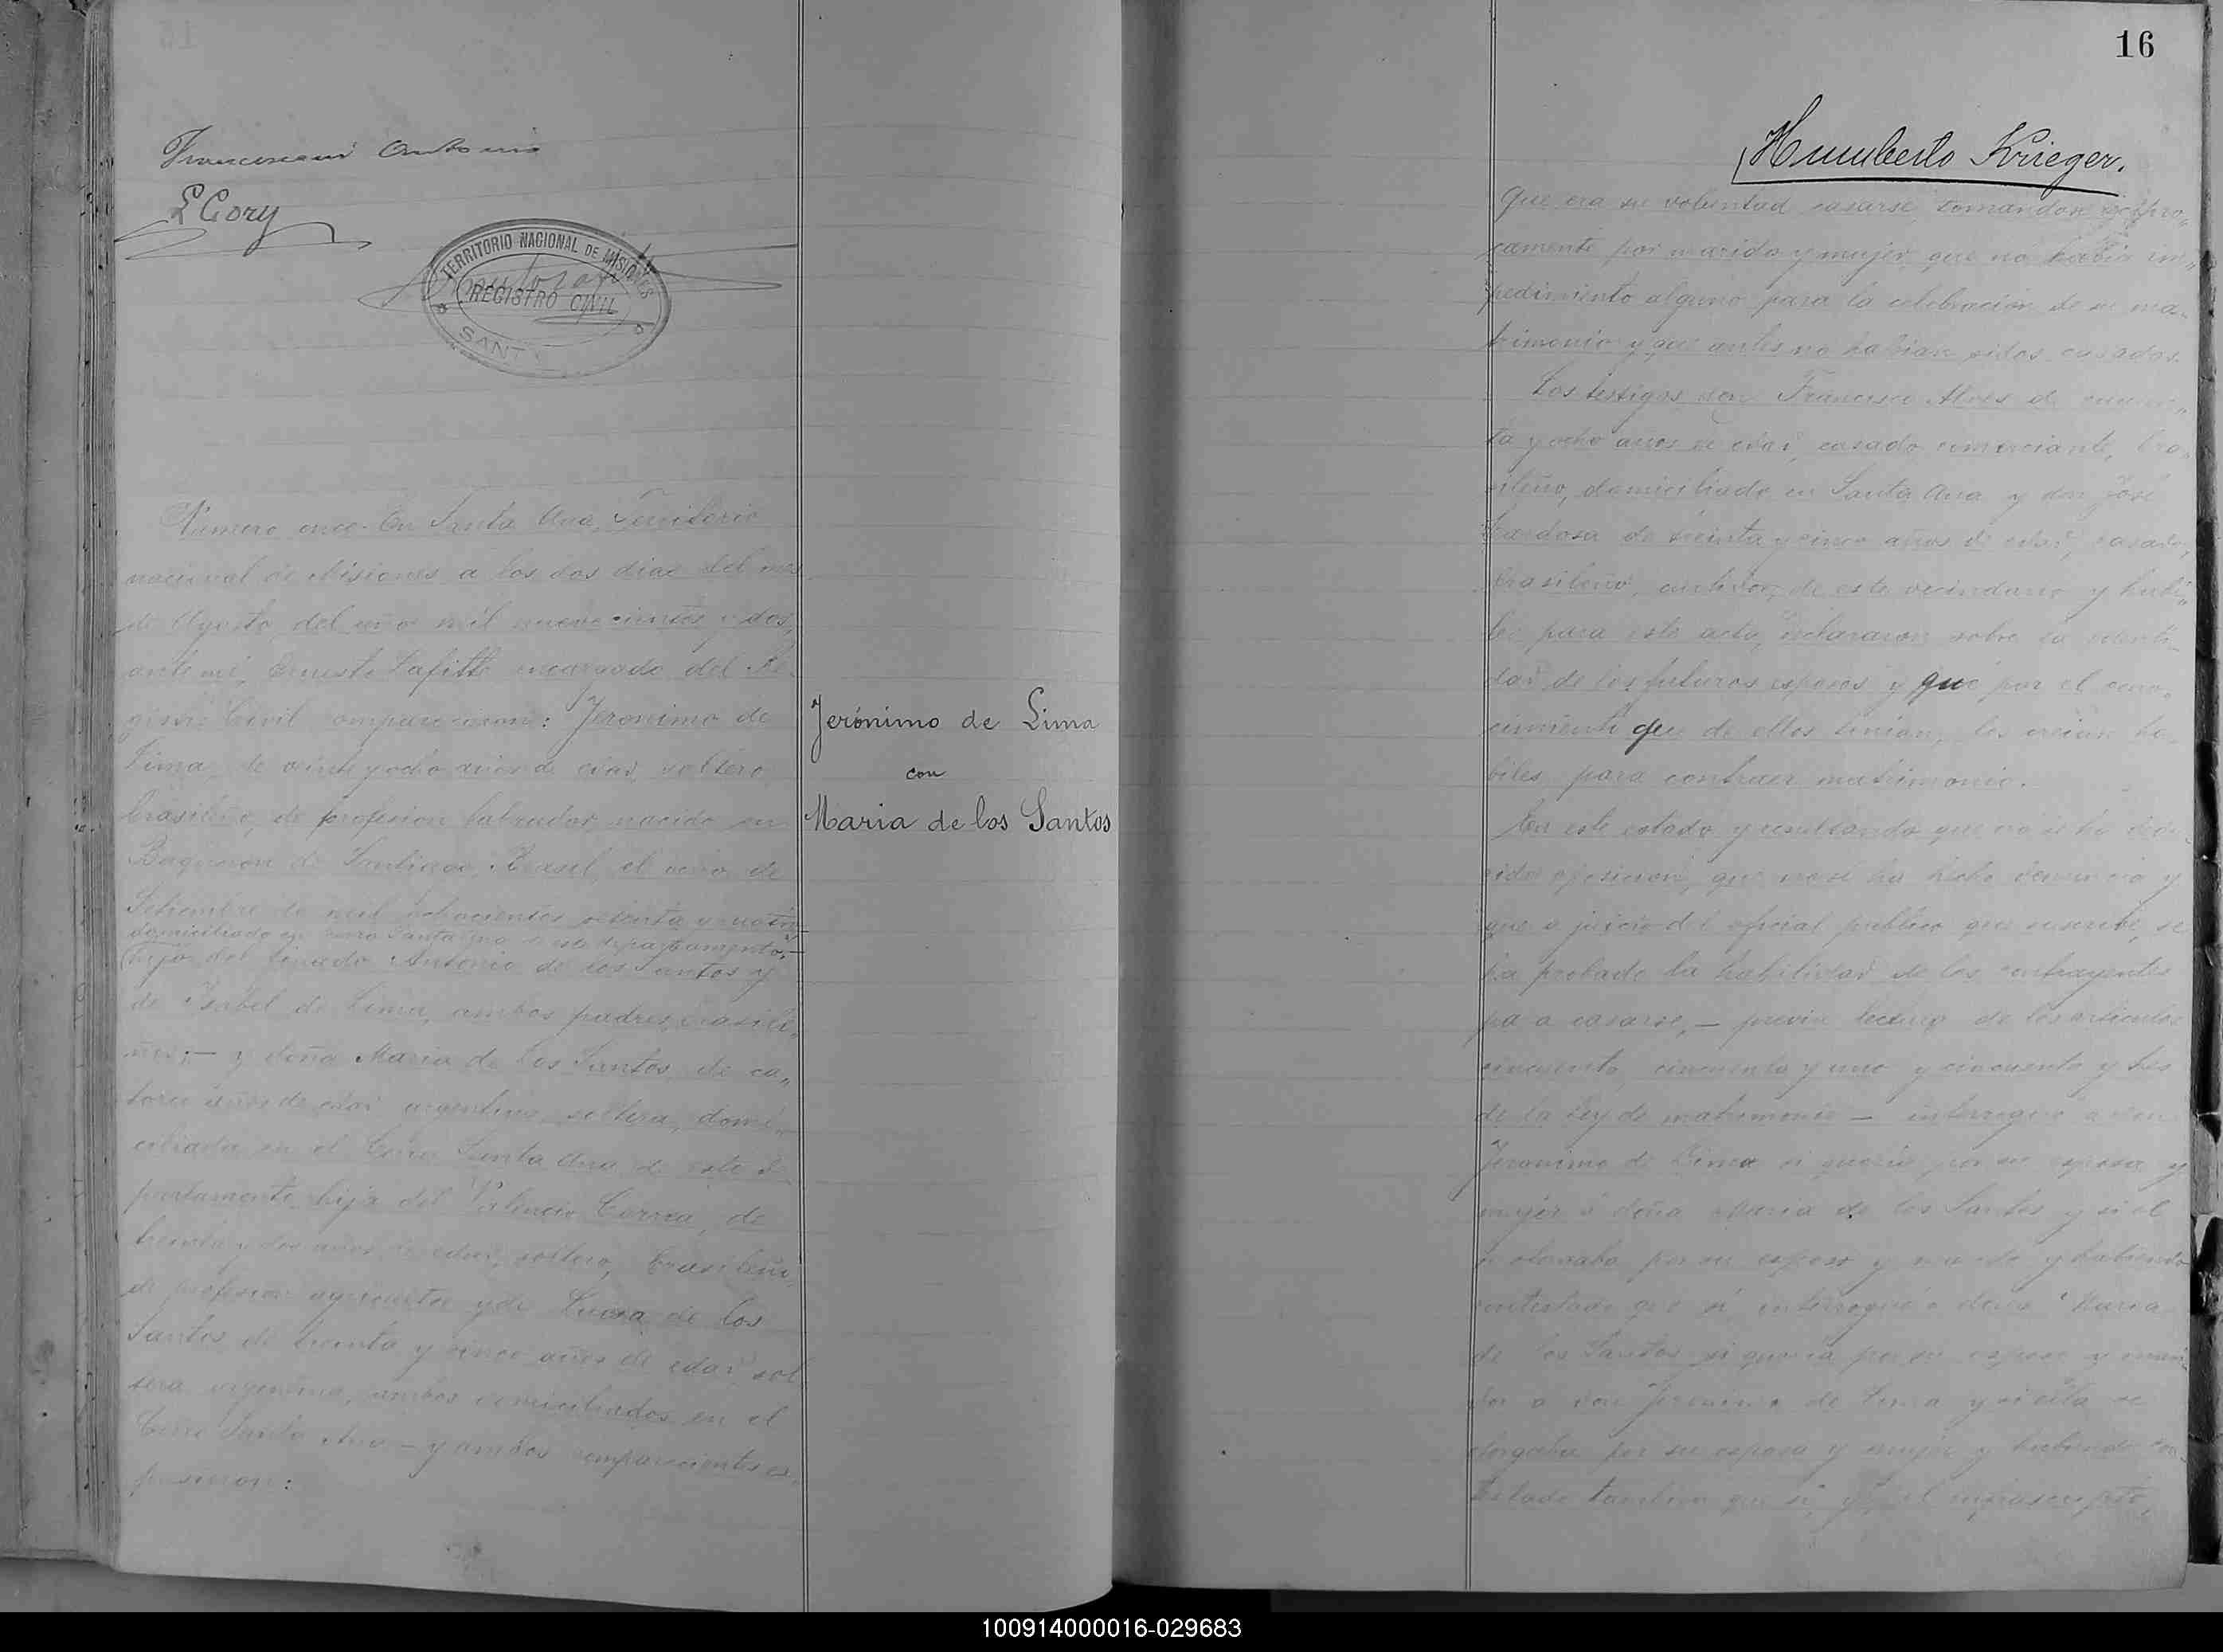 Antonio
L Cory
TERRITORIO NACIONAL DE MISIONES
REGISTRO CIVIL
SANT
Numero once. En Santa Ana, Territorio
nacional de Misiones a los dos dias del mes
de Agosto del año mil nuevecientos y dos,
ante mi, Ernesto Lafitte encargado del Re-
gistro Civil comparecieron: Jeronimo de
Lima, de veinte y ocho años de edad, soltero
brasileño, de profesion labrador, nacido en
de Santiago, Brasil, el de
Setiembre de mil ochocientos setenta y cuatro
domiciliado en Cerro Santa Ana de este departamento,
hijo del finado Antonio de los Santos y
de Isabel de Lima, ambos padres brasile-
ños; — y doña Maria de los Santos de ca„
torce años de edad argentina, soltera, domi„
ciliada en el Cerro Santa Ana de este de
partamento hija del Valencio Correa, de
treinta y dos años de edad, soltero, brasileño
de profesion agricultor y de Luisa de los
Santos de treinta y cinco años de edad sol
tera argentina, ambos domiciliados en el
Cerro Santa Ana — y ambos comparecientes es-
pusieron:
Jerónimo de Lima
con
Maria de los Santos
16
Humberto Krieger.
Que era su voluntad casarse, tomandose recipro„
camente por marido y mujer, que no habia im„
pedimiento alguno para la celebracion de su ma„
trimonio y que antes no habian sidos casados.
Los testigos don Francisco Alves de cuaren„
ta y ocho años de edad, casado comerciante, bra„
sileño, domiciliado en Santa Ana y don José
Cardosa de treinta y cinco años de edad, casado,
brasileño, de este vecindario y habi„
les para este acto, declararon sobre la identi„
dad de los futuros esposos y que por el cono„
cimiento que de ellos tenian, los creian ha„
biles para contraer matrimonio.
En este estado y resultando que no se ha dedu„
cido oposicion, que no se ha hecho denuncia y
que a juicio del oficial publico que suscribe, se
ha probado la habilidad de los contrayentes
para casarse, — previa lectura de los articulos
cincuenta, cincuenta y uno y cincuenta y tres
de la Ley de matrimonio — interrogué a don
Jeronimo de Lima si queria por su esposa y
mujer á doña Maria de los Santos y si el
se otorgaba por su esposo y marido y habiendo
contestado que sí interrogué a doña Maria
de los Santos si queria por su esposo y mari
do a don Jeronimo de Lima y si ella se
otorgaba por su esposa y mujer y habiendo con
testado tambien que sí, yo, el infrascripto,
100914000016-029683